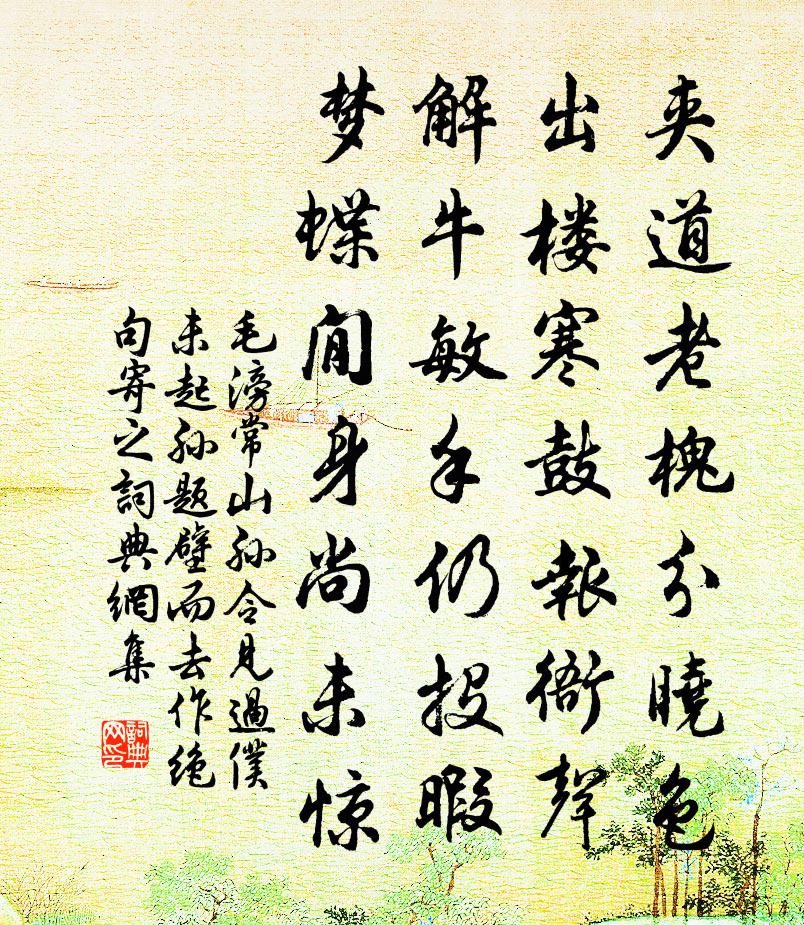 夹道老槐分曉色
出楼寒鼓報衙聲
解牛敏手仍投暇
梦蝶閒身尚未惊
毛滂常山孙令見過僕
未起孙题壁而去作绝
句寄之詞典網集
詞典
网印